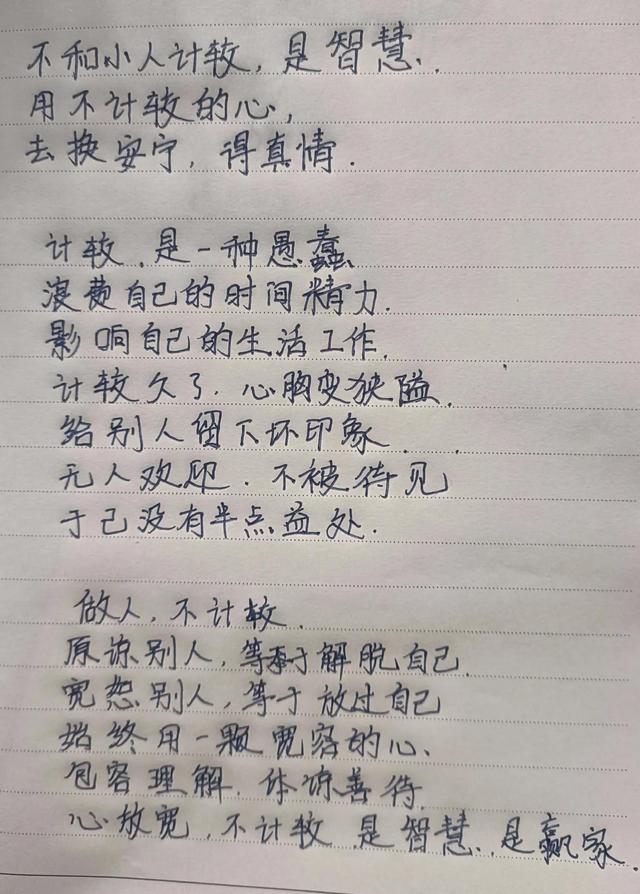 不和小人计较，是智慧.
用不计较的心，
去换安宁，得真情.
计较.是一种愚蠢
浪费自己的时间精力.
影响自己的生活工作.
计较久了.心胸变狭隘.
给别人留下坏印象.
无人欢迎.不被待见
于己没有半点益处.
做人，不计较.
原谅别人，等于解脱自己.
宽恕别人，等于放过自己
始终用一颗宽容的心、
包容理解.体谅善待.
心放宽，不计较.是智慧.是赢家.